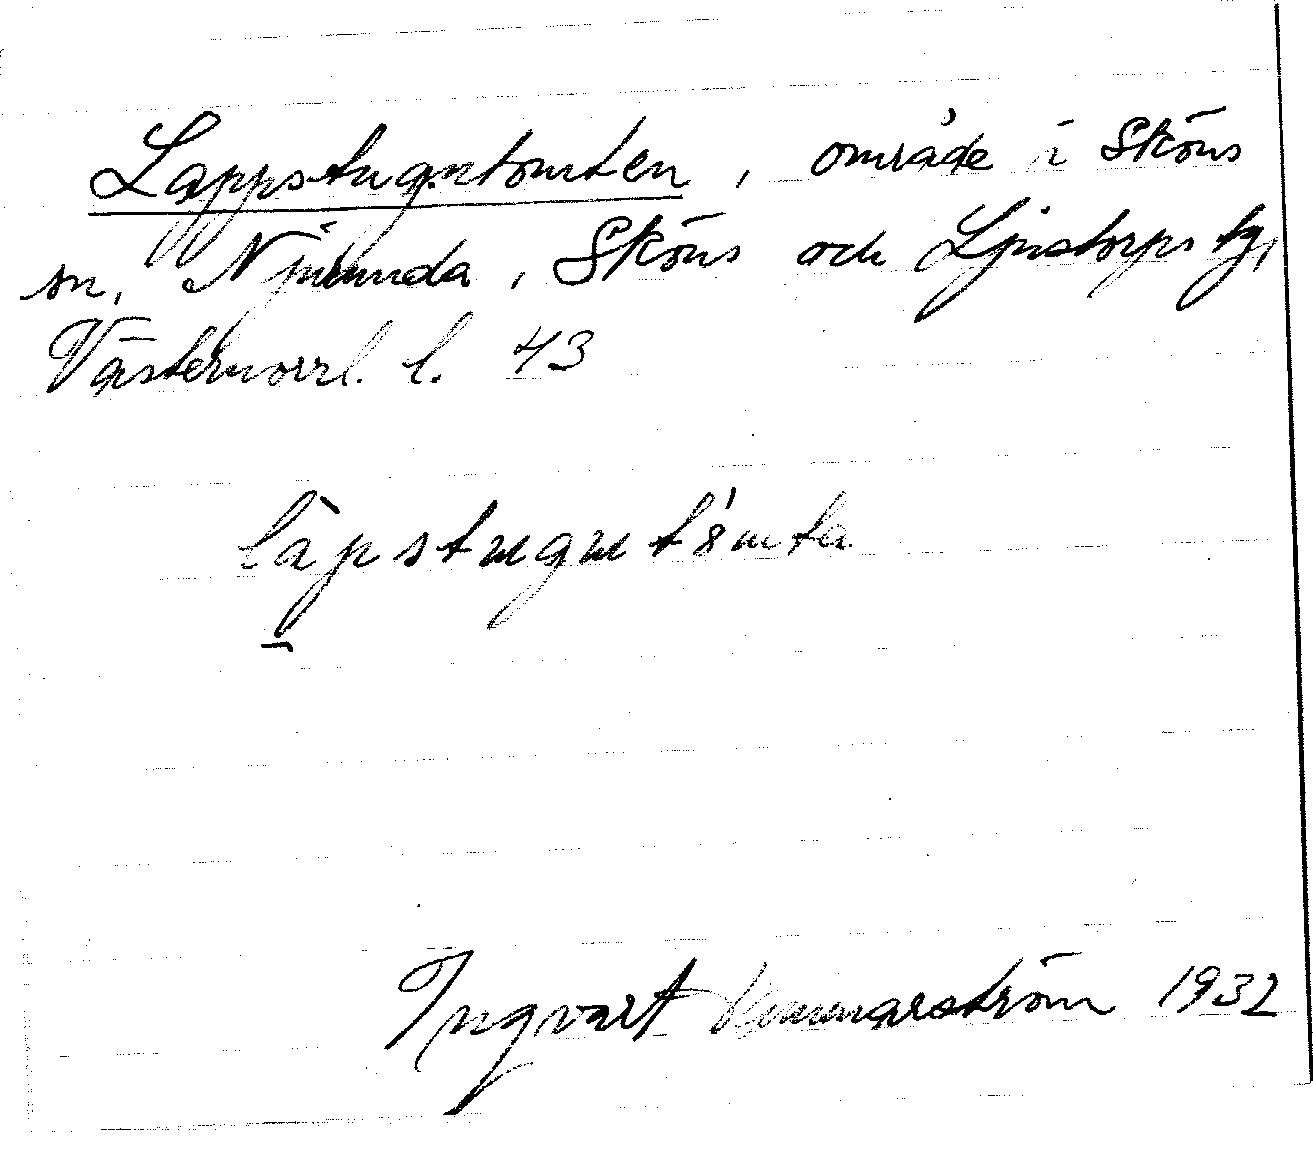 Lappstugutomten, område i Sköns
sn, Njurunda, Sköns och Ljustorps tg,
Västernorrl. l. 43
làpstugut'ȣmta
Ingvart Hammarström 1932